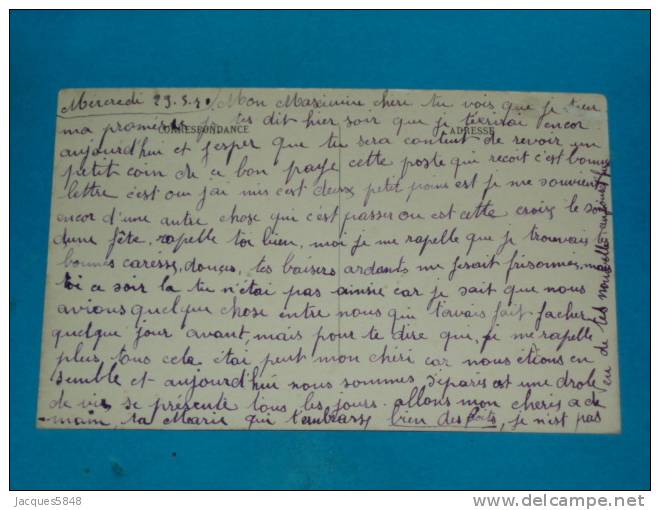 Mercredi 29.5.  Mon Maximine cheri tu vois que je tien
ma promesse je tes dit hier soir que je t'ecrirai encor
CORRESPONDANCE ADRESSE
aujourd'hui et j'esper que tu sera contant de revoir un
petit coin de ce bon paye cette poste qui recoit c'est bonne
lettre c'est ou j'ai mis c'est deux petit poins est je me souvien
encor d'une autre chose qui c'est passer ou est cette croix le soir
d'une fête. rapelle toi bien, moi je me rapelle que je trouvais
bonnes caresse, douces, tes baisers ardants me fesait frisonner, mai
toi ce soir la tu n'étai pas ainsie car je sait que nous
avions quelque chose entre nous qui t'avais fait facher
quelque jour avant, mais pour te dire qui, je me rapelle
plus, tous cela étai peut mon chéri car nous étions en
semble et aujourd'hui nous sommes séparés est une drole
de vie se présente tous les jours. allons mon cheris a de
main, ta Marie qui t'embrass bien des foits, je n'est pas
eu de tes nouvelle aujourd'hui
Jacques5848
delcampe.net